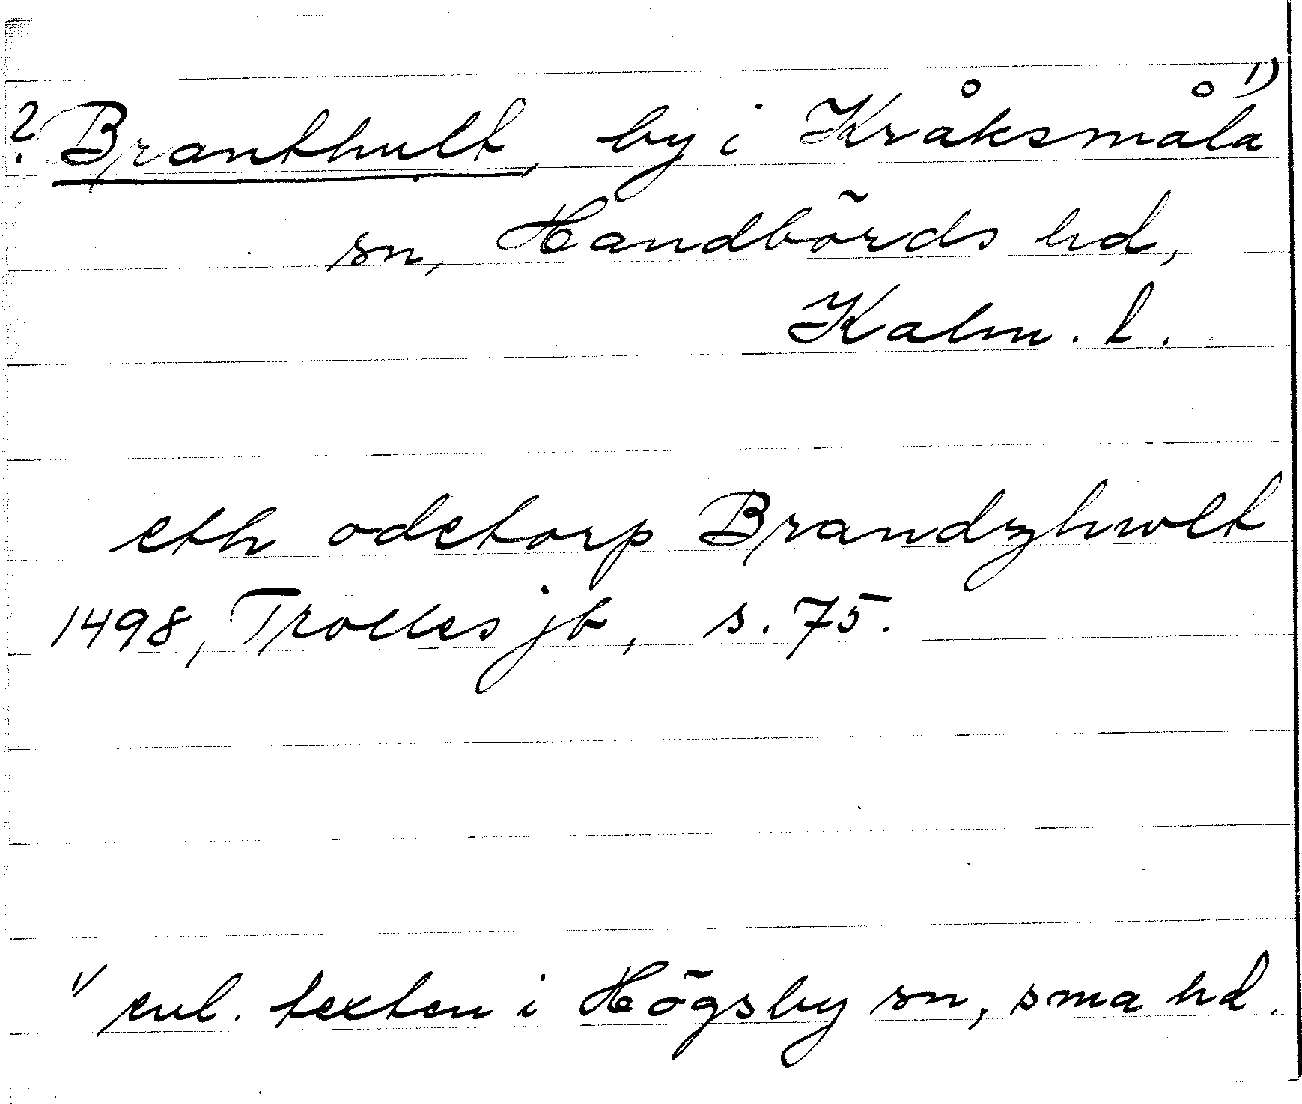 ? Branthult, by i Kråksmåla 1)
sn, Handbörds hd,
Kalm. l.
eth ödetorp Brandzhwlt
1498, Trolles jb, s. 75.
1) enl. texten i Högsby sn, sma hd.